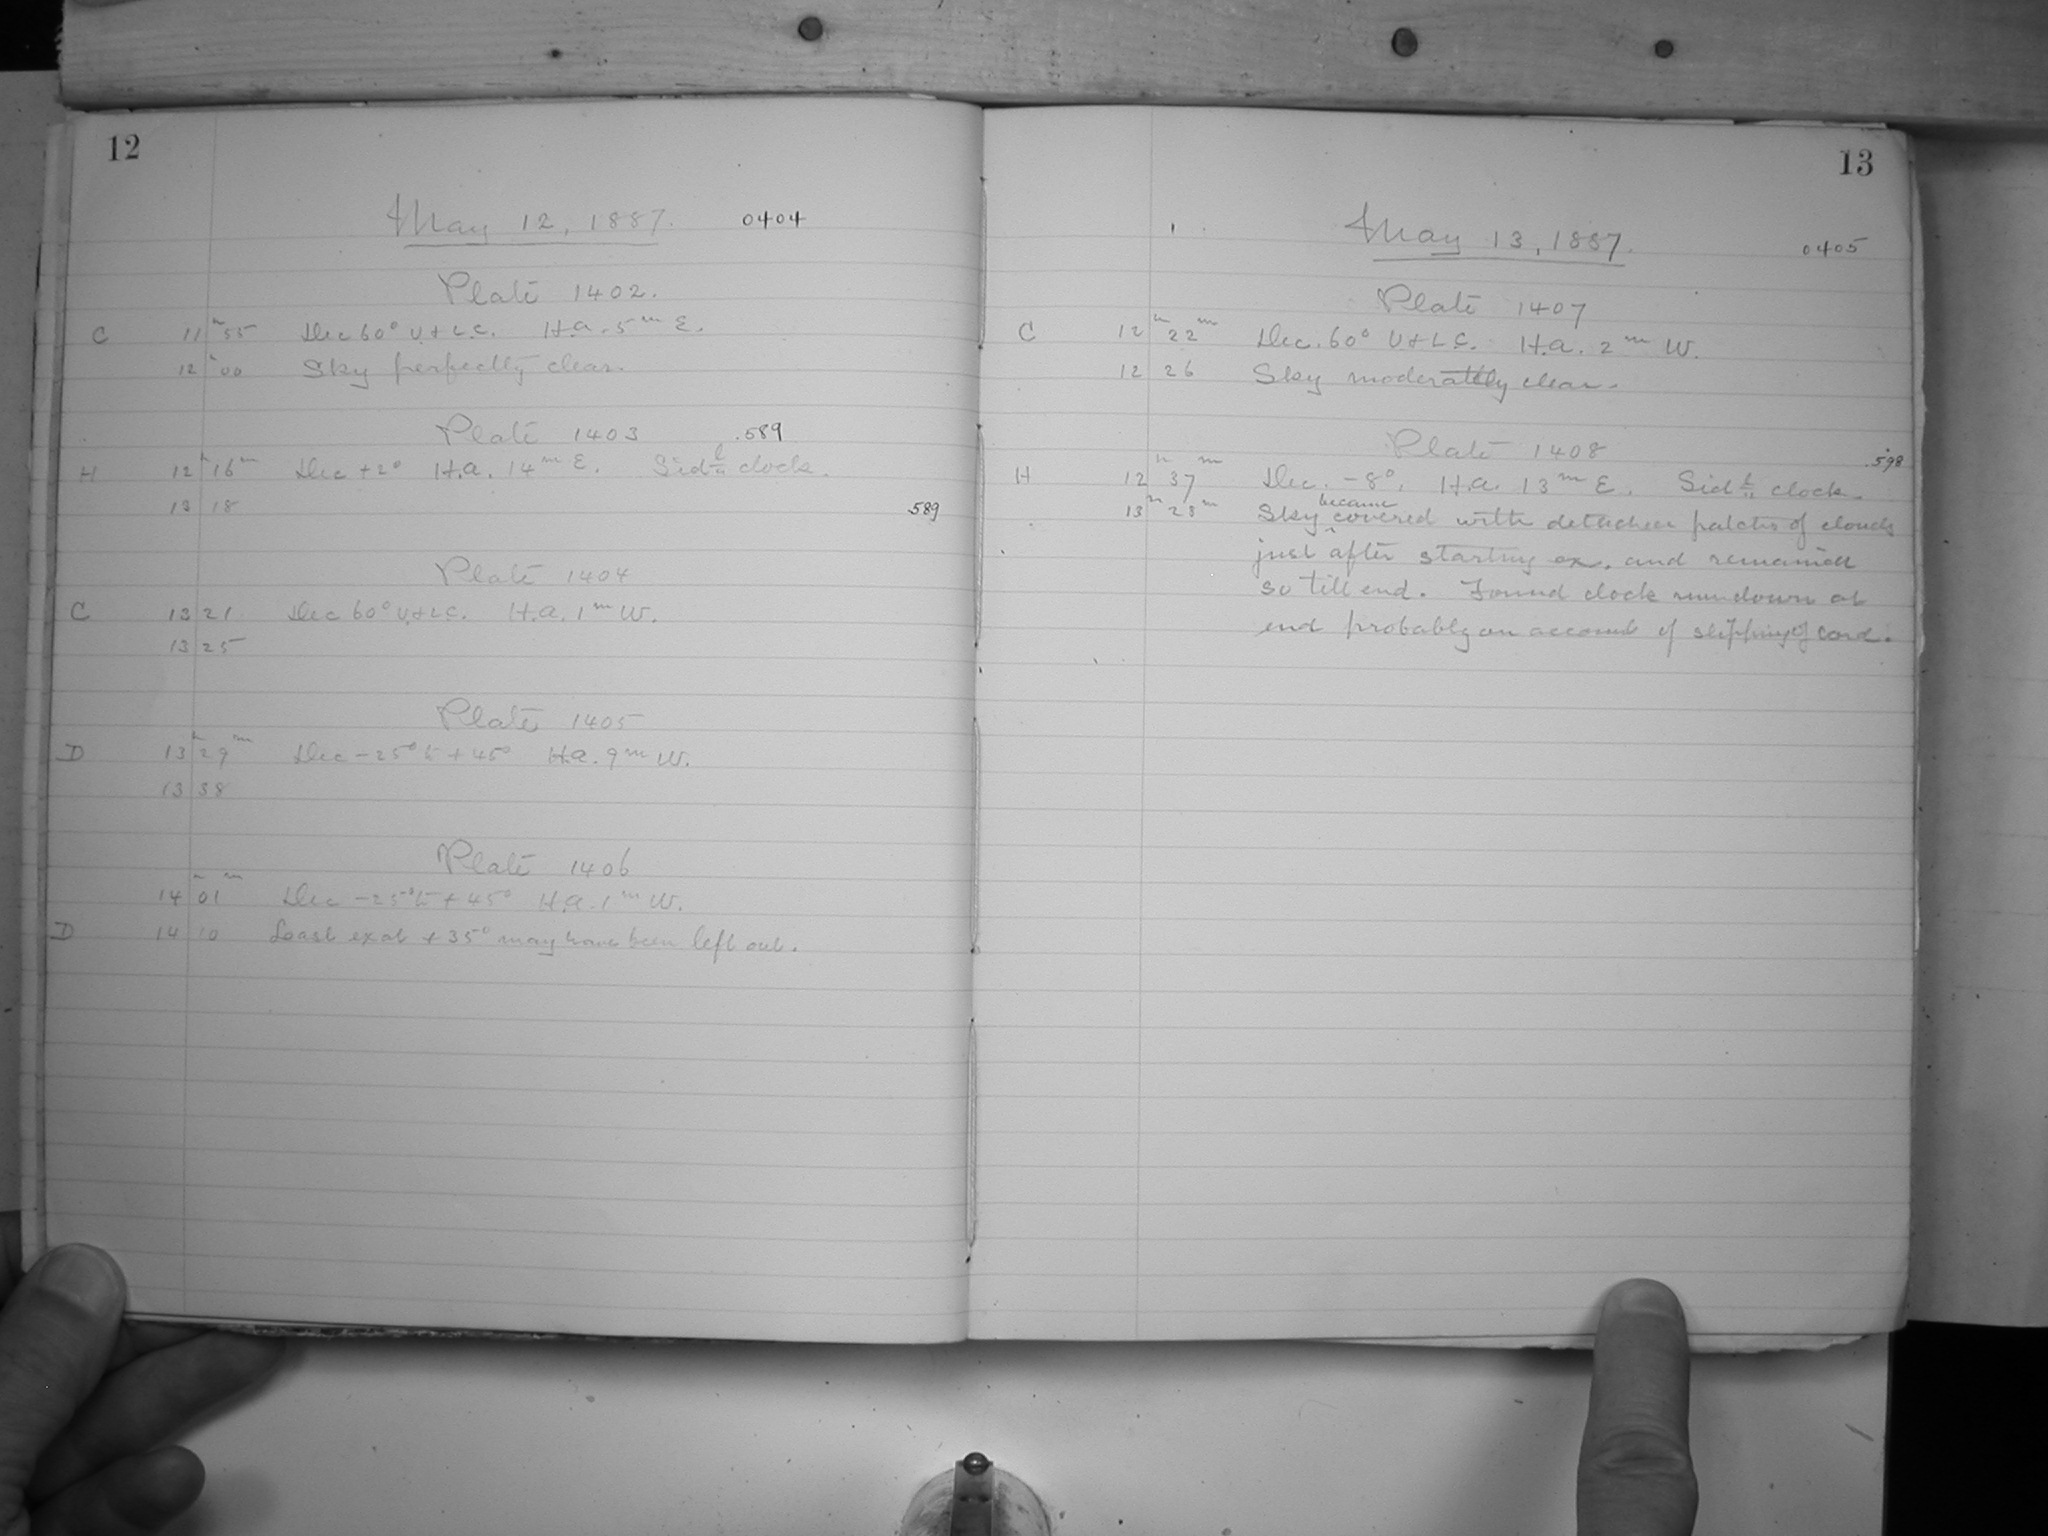 12
May 12, 1887. 0404
Plate 1402.
C 11h 55 Dec 60° U.+L.C. H.a. 5m E.
12h 00 Sky perfectly clear.
Plate 1403 .589
H 12h 16m Dec +2° H.a. 14m E. Sid'l clock.
13 18 589
Plate 1404
C 13 21 Dec 60° U.+L.C. H.a. 1m W.
13 25
Plate 1405
D 13h 29m Dec -25° to +45° H.a. 9m W.
13 38
Plate 1406
14h 01m Dec -25° to +45° H.a. 1m W.
D 14 10 Least ex at +35° may have been left out.
13
May 13, 1887. 0405
Plate 1407
C 12h 22m Dec. 60° U.+L.C. H.a. 2m W.
12 26 Sky moderately clear.
Plate 1408 .598
H 12h 37m Dec. -8°. H.a. 13m E. Sid'l clock.
13h 28m Sky became covered with detached patches of clouds
just after starting ex. and remained
so till end. Found clock run down at
end probably on account of slipping of cord.